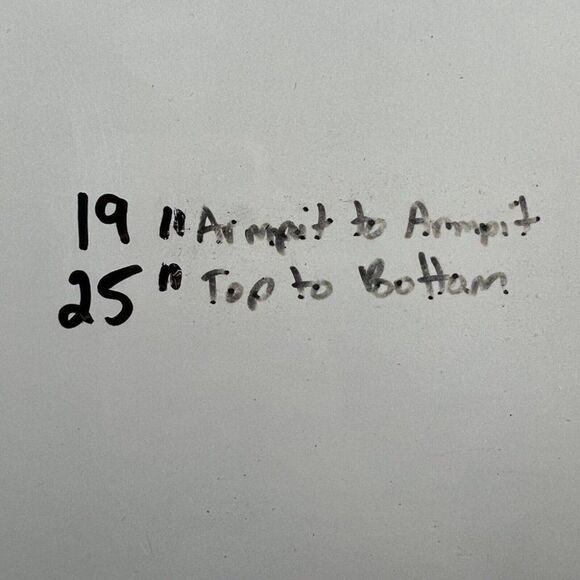 19 " Armpit to Armpit
25 " Top to Bottam